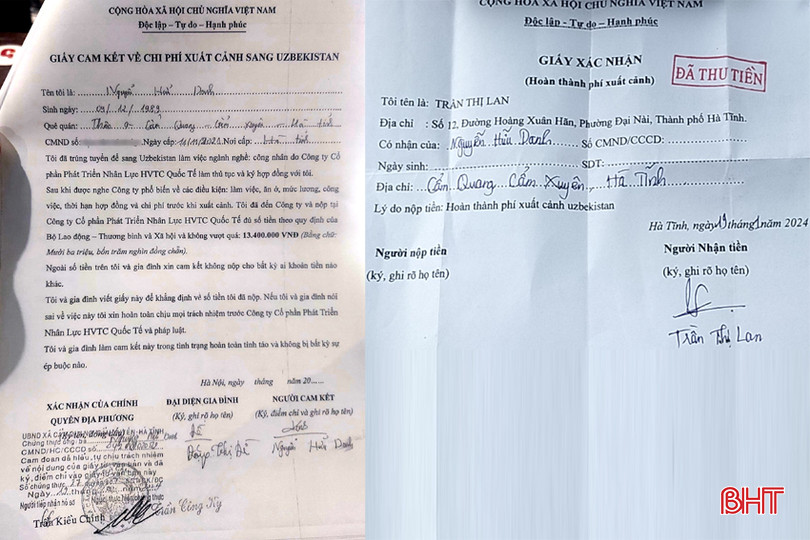 CỘNG HÒA XÃ HỘI CHỦ NGHĨA VIỆT NAM
Độc lập - Tự do - Hạnh phúc
GIẤY CAM KẾT VỀ CHI PHÍ XUẤT CẢNH SANG UZBEKISTAN
Tên tôi là: Nguyễn Hữu Danh
Sinh ngày: 09/12/1989
Quê quán: Cẩm Quang Cẩm Xuyên Hà Tĩnh
CMND số Ngày cấp: Nơi cấp: Hà Tĩnh
Tôi đã trúng tuyển để sang Uzbekistan làm việc ngành nghề: công nhân do Công ty Cổ
phần Phát Triển Nhân Lực HVTC Quốc Tế làm thủ tục và ký hợp đồng với tôi.
Sau khi được nghe Công ty phổ biến về các điều kiện: làm việc, ăn ở, mức lương, công
việc, thời hạn hợp đồng và chi phí trước khi xuất cảnh. Tôi đã đến Công ty và nộp tại
Công ty Cổ phần Phát Triển Nhân Lực HVTC Quốc Tế đủ số tiền theo quy định của
Bộ Lao động – Thương binh và Xã hội và không vượt quá: 13.400.000 VNĐ (Bằng chữ:
Mười ba triệu, bốn trăm nghìn đồng chẵn).
Ngoài số tiền trên tôi và gia đình xin cam kết không nộp cho bất kỳ ai khoản tiền nào
khác.
Tôi và gia đình viết giấy này để khẳng định về số tiền tôi đã nộp. Nếu tôi và gia đình nói
sai về việc này tôi xin hoàn toàn chịu mọi trách nhiệm trước Công ty Cổ phần Phát Triển
Nhân Lực HVTC Quốc Tế và pháp luật.
Tôi và gia đình làm cam kết này trong tình trạng hoàn toàn tỉnh táo và không bị bất kỳ sự
ép buộc nào.
Hà Nội, ngày tháng năm 20......
XÁC NHẬN CỦA CHÍNH QUYỀN ĐỊA PHƯƠNG
ĐẠI DIỆN GIA ĐÌNH
(Ký, ghi rõ họ tên)
NGƯỜI CAM KẾT
(Ký, điểm chỉ và ghi rõ họ tên)
Nguyễn Hữu Danh
CMND/HC/CCCD số
Cam đoan đã hiểu, tự chịu trách nhiệm
về nội dung của giấy tờ văn bản và đã
ký, điểm chỉ vào giấy tờ văn bản này
Số chứng thực
Ngày
Người tiếp nhận hồ sơ
Trần Kiều Chinh
Trần Công Kỳ
CỘNG HÒA XÃ HỘI CHỦ NGHĨA VIỆT NAM
Độc lập - Tự do - Hạnh phúc
GIẤY XÁC NHẬN
(Hoàn thành phí xuất cảnh)
ĐÃ THU TIỀN
Tôi tên là: TRẦN THỊ LAN
Địa chỉ : Số 12, Đường Hoàng Xuân Hãn, Phường Đại Nài, Thành phố Hà Tĩnh.
Có nhận của: Nguyễn Hữu Danh Số CMND/CCCD:
Ngày sinh: SDT:
Địa chỉ: Cẩm Quang Cẩm Xuyên, Hà Tĩnh
Lý do nộp tiền: Hoàn thành phí xuất cảnh uzbekistan
Hà Tĩnh, ngày 19 tháng 1 năm 2024
Người nộp tiền
(ký, ghi rõ họ tên)
Người Nhận tiền
(ký, ghi rõ họ tên)
Trần Thị Lan
BHT